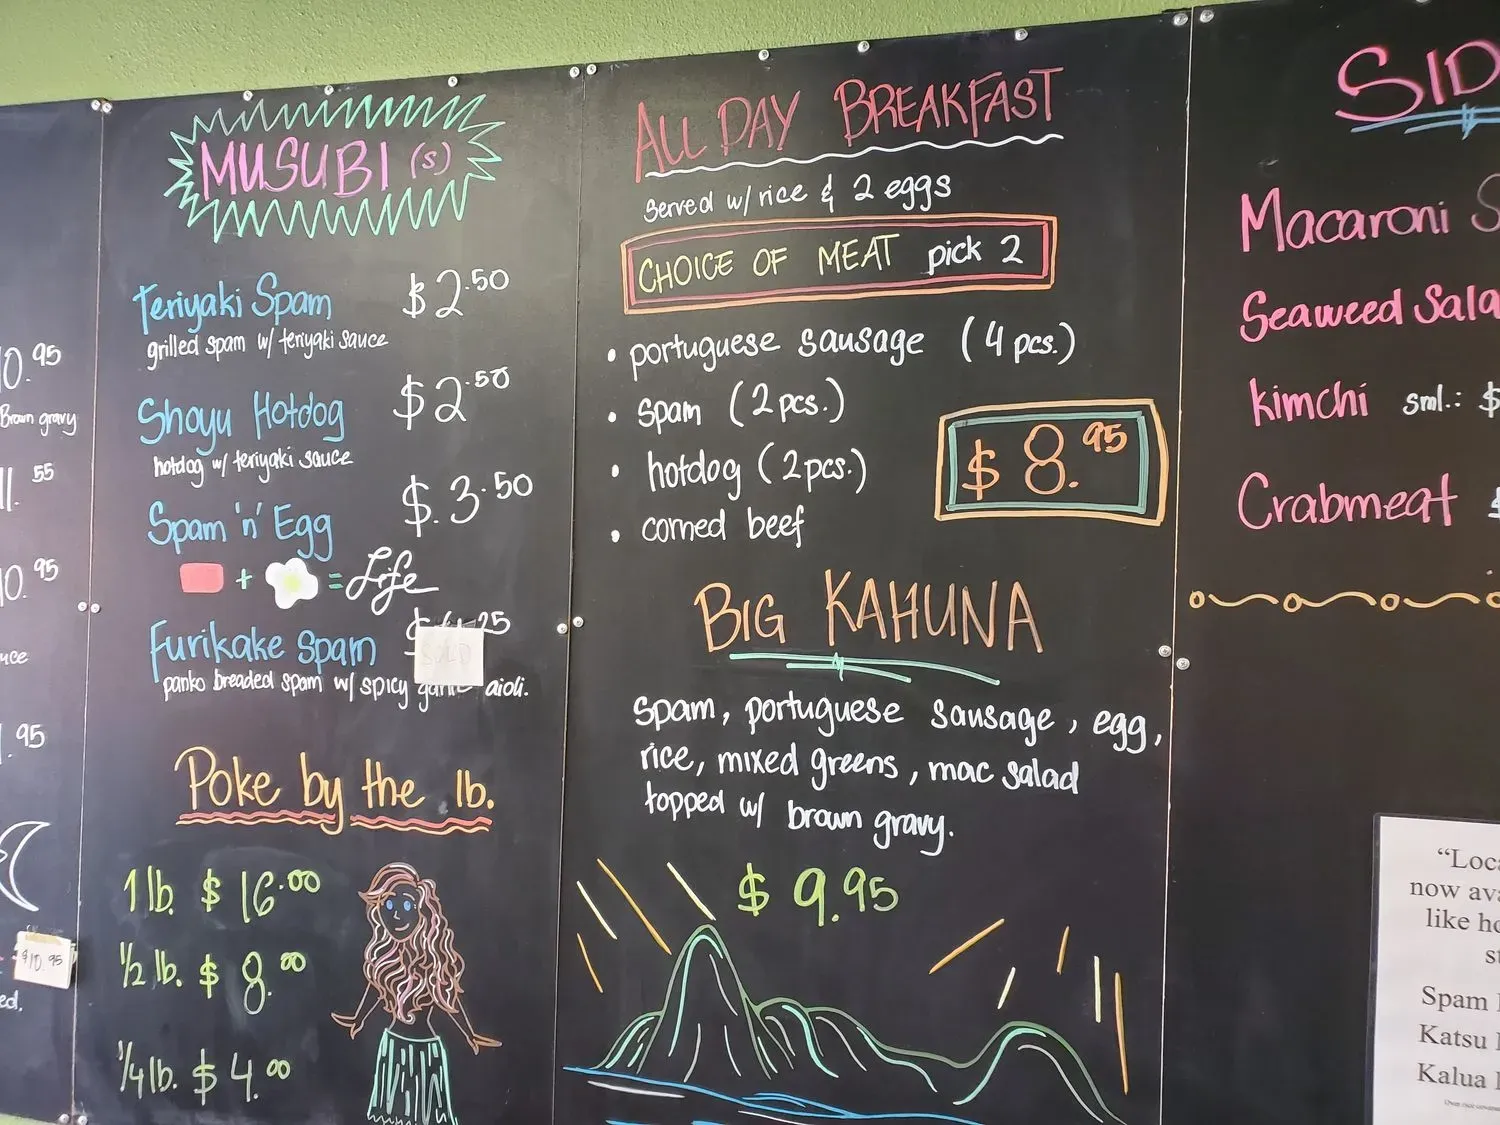 0.95
Brown gravy
1.55
0.95
uce
.95
$10.95
ed.
MUSUBI (s)
Teriyaki Spam $2.50
grilled spam w/ teriyaki sauce
Shoyu Hotdog $2.50
hotdog w/ teriyaki sauce
Spam 'n' Egg $.3.50
+ = Life
Furikake Spam
SOLD
panko breaded spam w/ spicy garlic aioli.
Poke by the lb.
1 lb. $ 16.00
1/2 lb. $ 8.00
1/4 lb. $ 4.00
ALL DAY BREAKFAST
Served w/ rice & 2 eggs
CHOICE OF MEAT pick 2
• portuguese sausage (4 pcs.)
• spam (2 pcs.)
• hotdog (2 pcs.)
• corned beef
$ 8.95
BIG KAHUNA
Spam, portuguese sausage, egg,
rice, mixed greens, mac salad
topped w/ brown gravy.
$ 9.95
SID
Macaroni S
Seaweed Sala
Kimchi sml.: $
Crabmeat $
"Loca
now ava
like ho
st
Spam
Katsu
Kalua